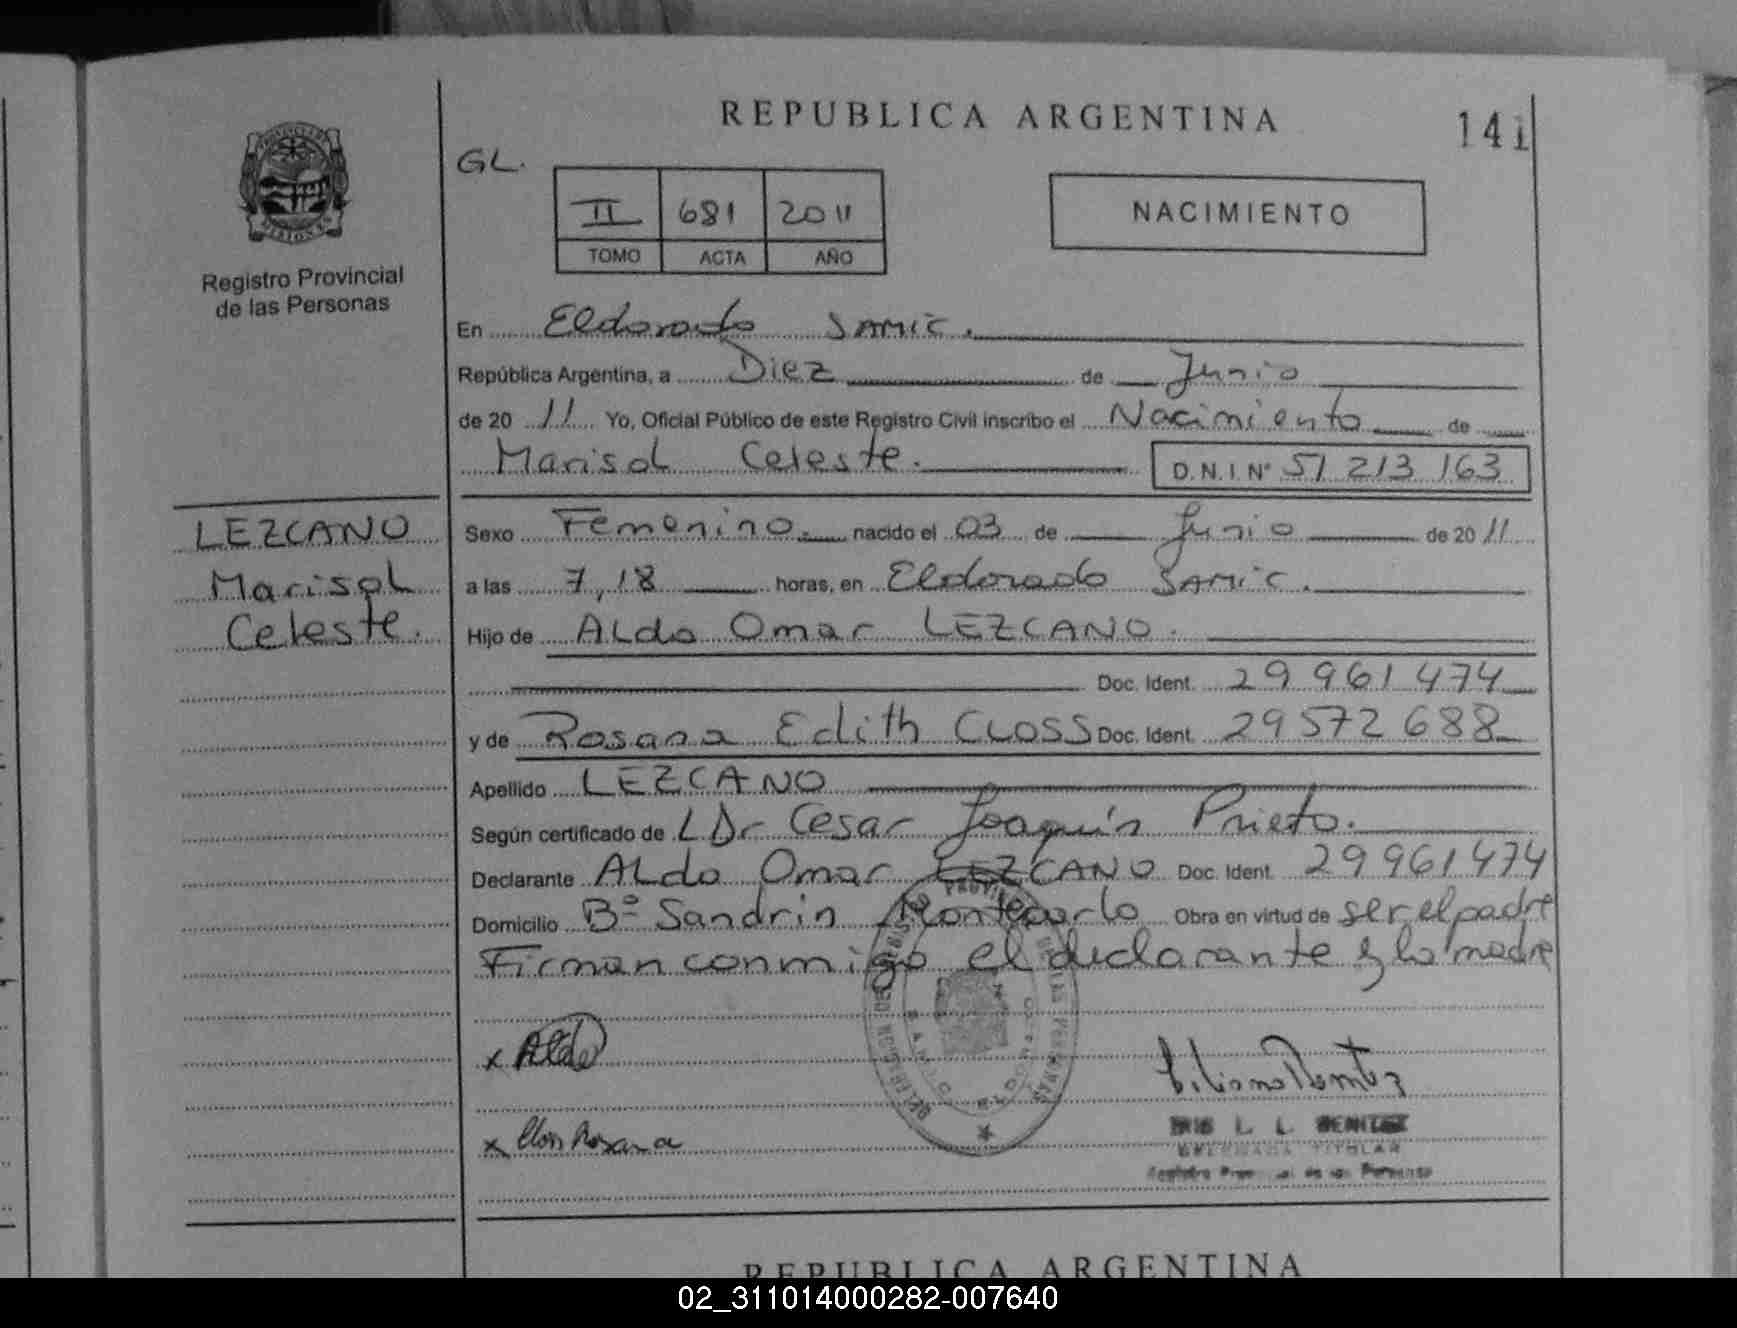 REPUBLICA ARGENTINA
141
GL.
II 681 2011
TOMO ACTA AÑO
NACIMIENTO
Registro Provincial
de las Personas
En Eldorado SAMIC.
República Argentina, a Diez de Junio
de 20 11 Yo, Oficial Público de este Registro Civil inscribo el Nacimiento de
Marisol Celeste. D.N.I. Nº 51 213 163
LEZCANO
Marisol
Celeste.
Sexo Femenino. nacido el 03 de Junio de 20 11
a las 7,18 horas, en Eldorado SAMIC.
Hijo de Aldo Omar LEZCANO.
Doc. Ident. 29 961 474
y de Rosana Edith CLOSS Doc. Ident. 29 572 688
Apellido LEZCANO
Según certificado de Dr Cesar Joaquín Prieto.
Declarante Aldo Omar LEZCANO Doc. Ident. 29 961 474
Domicilio Bº Sandrin Montecarlo Obra en virtud de ser el padre
Firman conmigo el declarante y la madre
x Aldo
x Clos Rosana
L. L. BENITEZ
TITULAR
REPUBLICA ARGENTINA
02_311014000282-007640